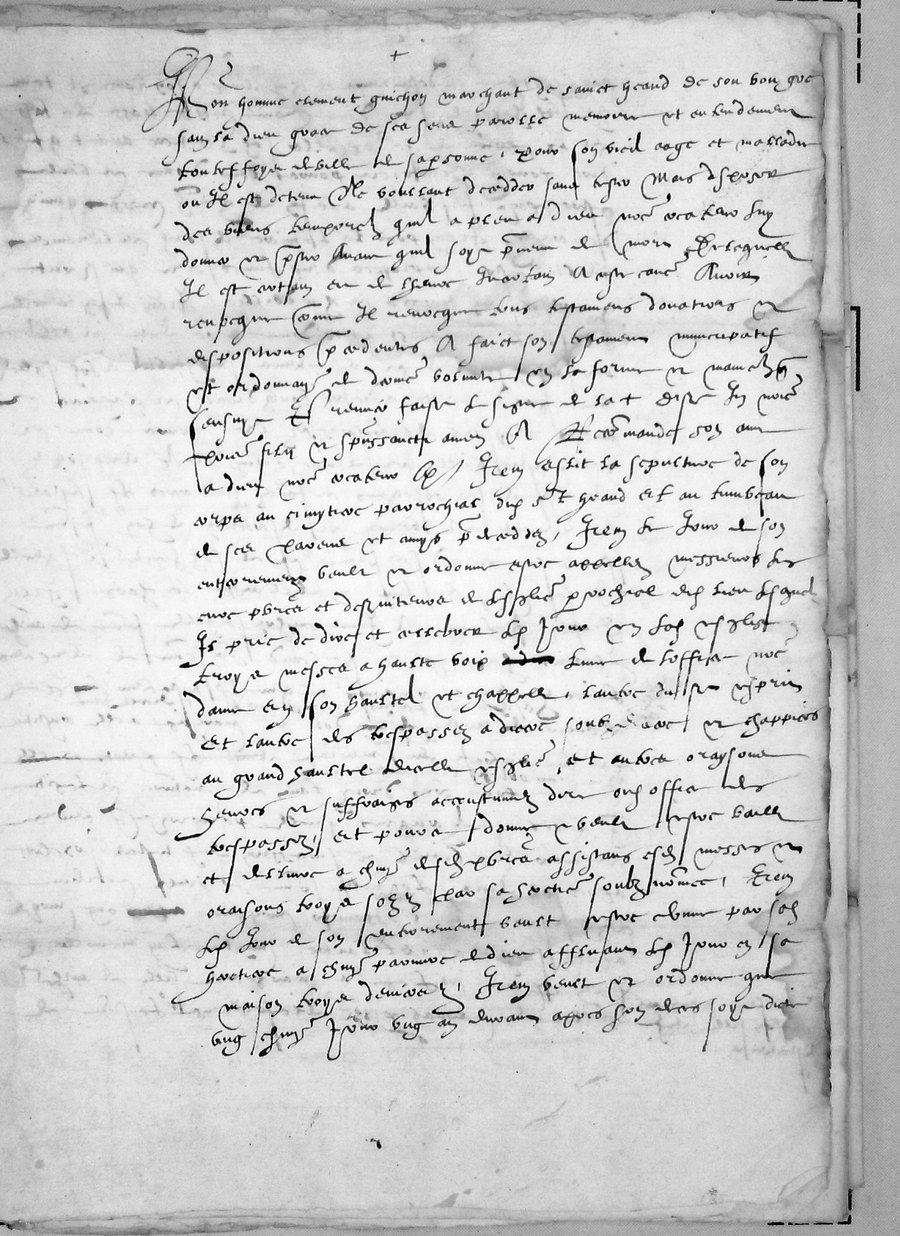 +
Hon homme clement guichon marchant de sainct heand de son bon gre
sain la dieu grace de ses sens parolle memoire et entendement
touteffoys debille de sa personne pour son vieil aage et malladie
ou Il est detenu Ne voullant decedder sans tester Mais disposer
des biens temporelz quil a pleu a dieu nore createur luy
donner et prester Avant quil soye prevenu de mort De laquelle
Il est certain et de lheure Incertain A ceste cause Avoir
revocque comme Il revocque tous testamens donations et
dispositions precedentes A faict son testament nuncupatif
et ordonnance de derniere volunte en la forme et maniere que
sensuyt Et premier faisant le signe de la + disant In noie
patris filii et spussancti amen A Recommande son ame
a dieu nore createur Item eslit la sepulture de son
corps au cimytiere parrochial dud st heand et au tumbeau
de ses parens et amys predecedez, Item le Jour de son
enterrement veult et ordonne estre appellez messieurs les
cure pbres et de leglise parrochial dud lieu lesquelz
Il prie de dire et cellebrer led Jour en lad eglise
troys messes a haulte voix lune de loffice nore
dame en son haultel et chappelle, lautre du st esprit
Et lautre des trespassez a diacre soubzdiacre et chappiers
au grand haultel dicelle eglise, et autres oraysons
heures et suffraiges accoustumez dire en office des
trespassez, et pource donne et veult estre baille
et delivre a chun desd pbres assistans esd messes et
oraisons troys solz par sa heretiere soubz nommee, Item
led Jour de son enterrement veult estre donne par sad
heretiere a chun pauvre de dieu affluant led Jour en sa
maison troys deniers, Item veult et ordonne que
ung chun Jour ung an durant apres son deces soye dicte